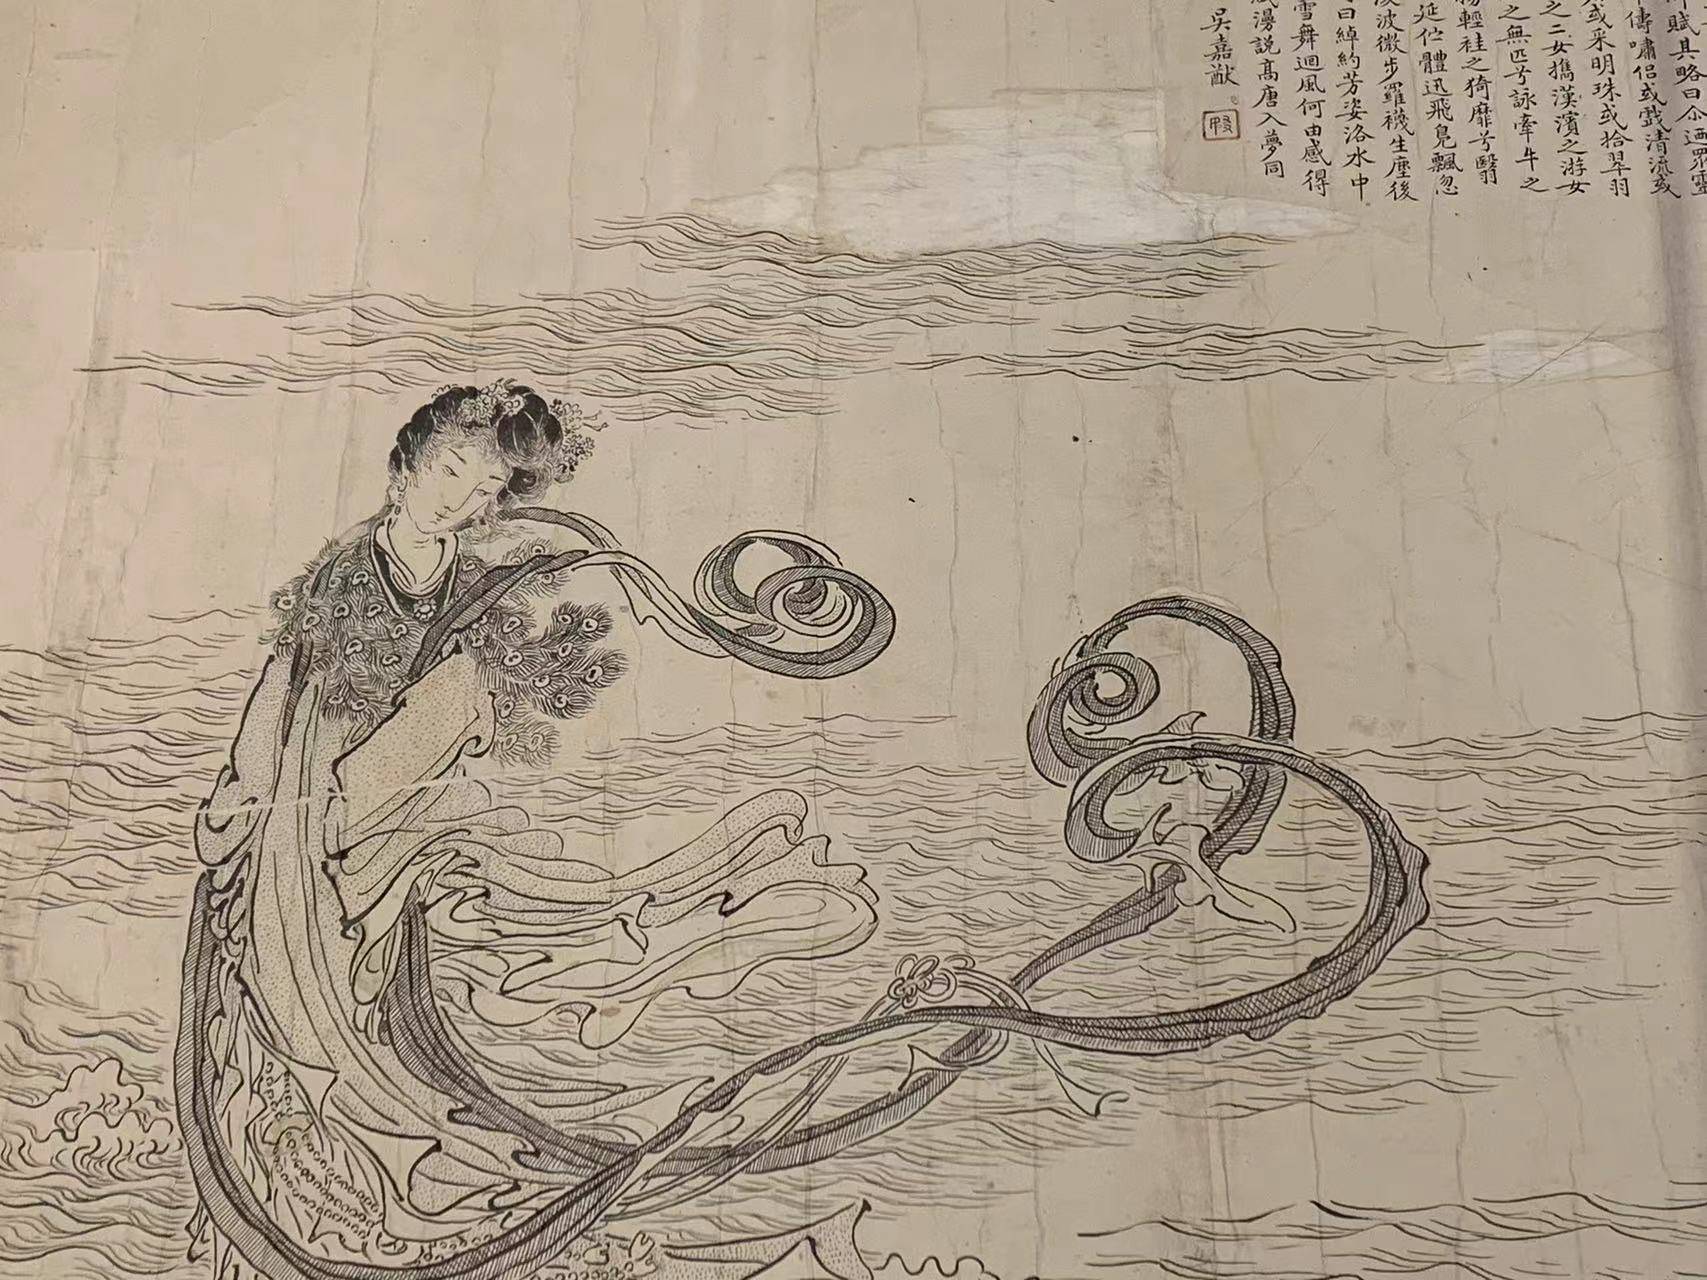 賦其略曰尒迺眾靈
儔嘯侶或戲清流或
或采明珠或拾翠羽
之二女攜漢濱之游女
之無匹兮詠牽牛之
輕袿之猗靡兮翳
延佇體迅飛鳧飄忽
波微步羅襪生塵後
曰綽約芳姿洛水中
雪舞迴風何由感得
漫說高唐入夢同
吳嘉猷